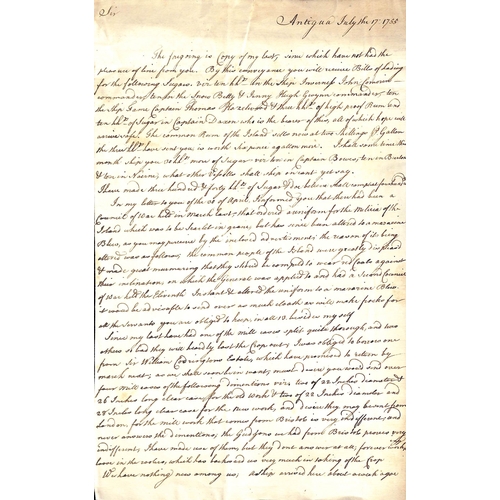 Sir
Antigua July the 17 1755
The foregoing is Copy of my last, since which have not had the
pleasure of line from you. By this conveyance you will receive Bills of Lading
for the following Sugars. viz ten hhds. in the Ship
Commander, ten in the Betty & Jenny Hugh Gwynn Commander, ten
the Ship Fame Captain Thomas & three hhds. of high proof Rum and
ten hhds. of Sugar in Captain Daxon who is the bearer of this, all of which hope will
arrive safe. The common Rum of the Island sells now at two Shillings Gallon
the three hhds. have sent you is worth six pence a gallon more. I shall some time this
month ship you hhds. more of Sugar viz ten in Captain Bowes, ten in
& ten in what other Vessels shall ship in cant yet say.
I have made three hundred & forty hhds. of Sugar & do believe shall
In my letter to you of the of April Informed you that there had been a
Council of War held in March last, that ordered a uniform for the Militia of the
Island which was to be Scarlet in grain, but has since been altered to a mazarine
Blew, as you may perceive by the inclosed advertisement, the reason of it being
altered was as follows, the common people of the Island were greatly displeased
& made great murmuring that they should be compeld to wear red Coats against
their inclinations on which the General was applied to and had a Second Council
of War held the Eleventh Instant & altered the uniform to a mazarine Blew.
it would be adviseable to send over as much cloath as will make for
all the Servants you are obliged to keep, in all 13. besides my self
Since my last have had one of the mill cases split quite thorough, and two
others so bad they will hardly last the Crop out, I was obliged to borrow one
from Sir William Codringtons Estate, which have promised to return by
march next, as we shall be in want, much desire you would send over
four mill cases of the following dimentions viz, two of 22 Inches diameter &
26 Inches long clear case for the old Work & two of 22 Inches diameter and
28 Inches long clear case for the New work, and desire they may be sent from
London, for the mill work that comes from Bristol is very indifferent, and
never answers the dimentions, the Gudgeons we had from Bristol proves very
indifferent, I have used one of them but they dont answer at all, forever
loose in the which has backward us very much in taking of the Crop
We have nothing new among us, a Ship arrived here about a week agoe